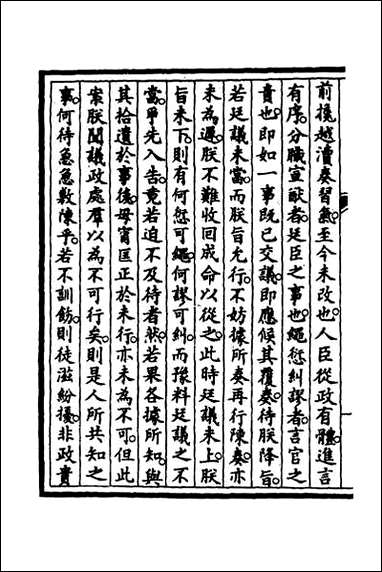 前攙越瀆奏習氣至今未改也人臣從政有體進言
有序分職宣猷者廷臣之事也繩愆糾謬者言官之
責也即如一事既已交議即應候其覆奏待朕降旨
若廷議未當而朕旨允行不妨據所奏再行陳奏亦
未為遲朕不難收回成命以從之此時廷議未上朕
旨未下則有何愆可繩何謬可糾而豫料廷議之不
當早先入告竟若迫不及待者然若果各據所知與
其拾遺於事後毋寧匡正於未行亦未為不可但此
案朕聞議政處羣以為不可行矣則是人所共知之
事何待急急敷陳乎若不訓飭則徒滋紛擾非政貴